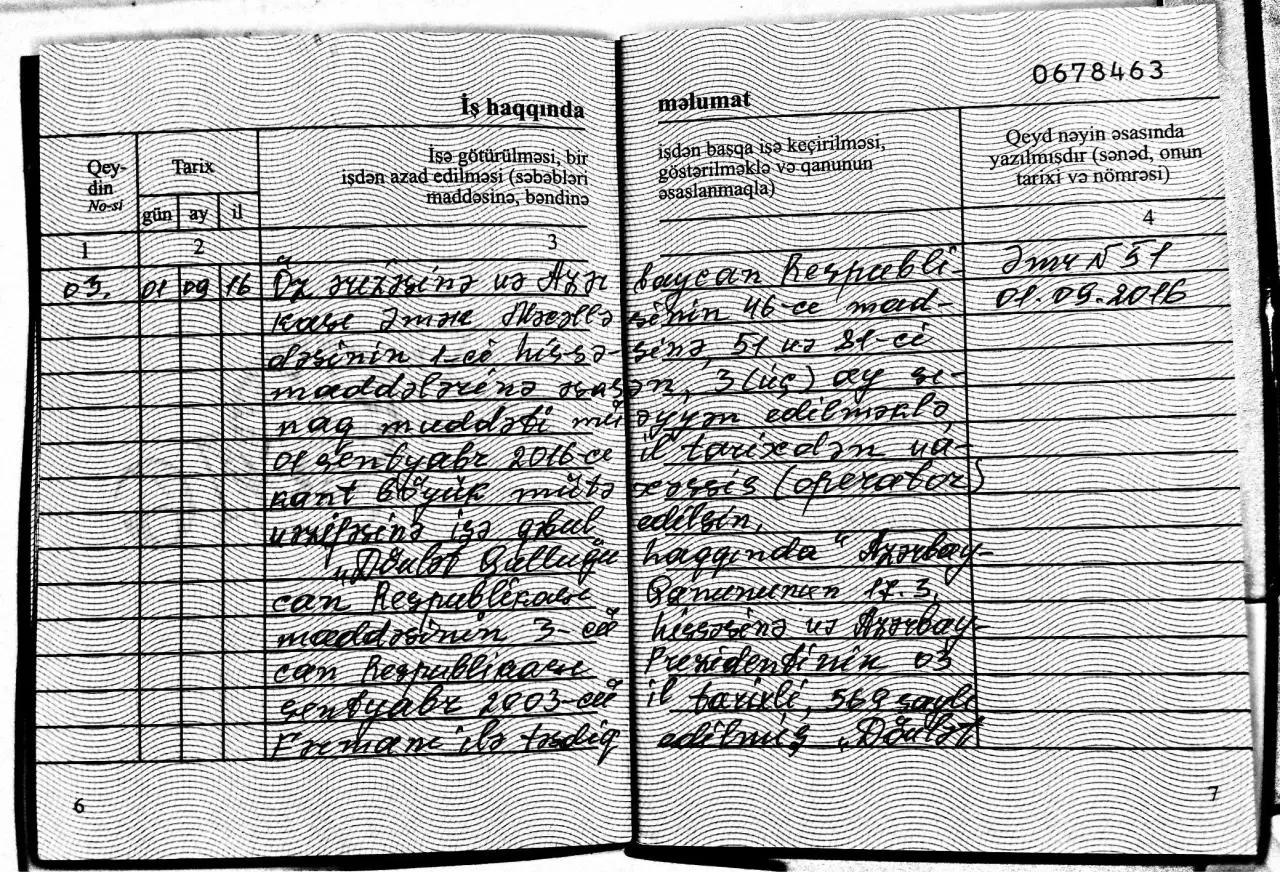 0678463
İş haqqında məlumat
Qeydin No-si
Tarix
gün ay il
İşə götürülməsi, bir işdən başqa işə keçirilməsi,
işdən azad edilməsi (səbəbləri göstərilməklə və qanunun
maddəsinə, bəndinə əsaslanmaqla)
Qeyd nəyin əsasında
yazılmışdır (sənəd, onun
tarixi və nömrəsi)
1 2 3 4
03. 01 09 16 Öz ərizəsinə və Azərbaycan Respubli- Əmr N 51
kası Əmək Məcəlləsinin 46-cı mad- 01.09.2016
dəsinin 1-ci hissəsinə, 51 və 81-ci
maddələrinə əsasən, 3 (üç) ay sı-
naq müddəti müəyyən edilməklə
01 sentyabr 2016-cı il tarixdən va-
kant böyük mütəxəssis (operator)
vəzifəsinə işə qəbul edilsin.
"Dövlət Qulluğu haqqında" Azərbay-
can Respublikası Qanununun 17.3.
maddəsinin 3-cü hissəsinə və Azərbay-
can Respublikası Prezidentinin 03
sentyabr 2003-cü il tarixli, 569 saylı
Fərmanı ilə təsdiq edilmiş "Dövlət
6 7